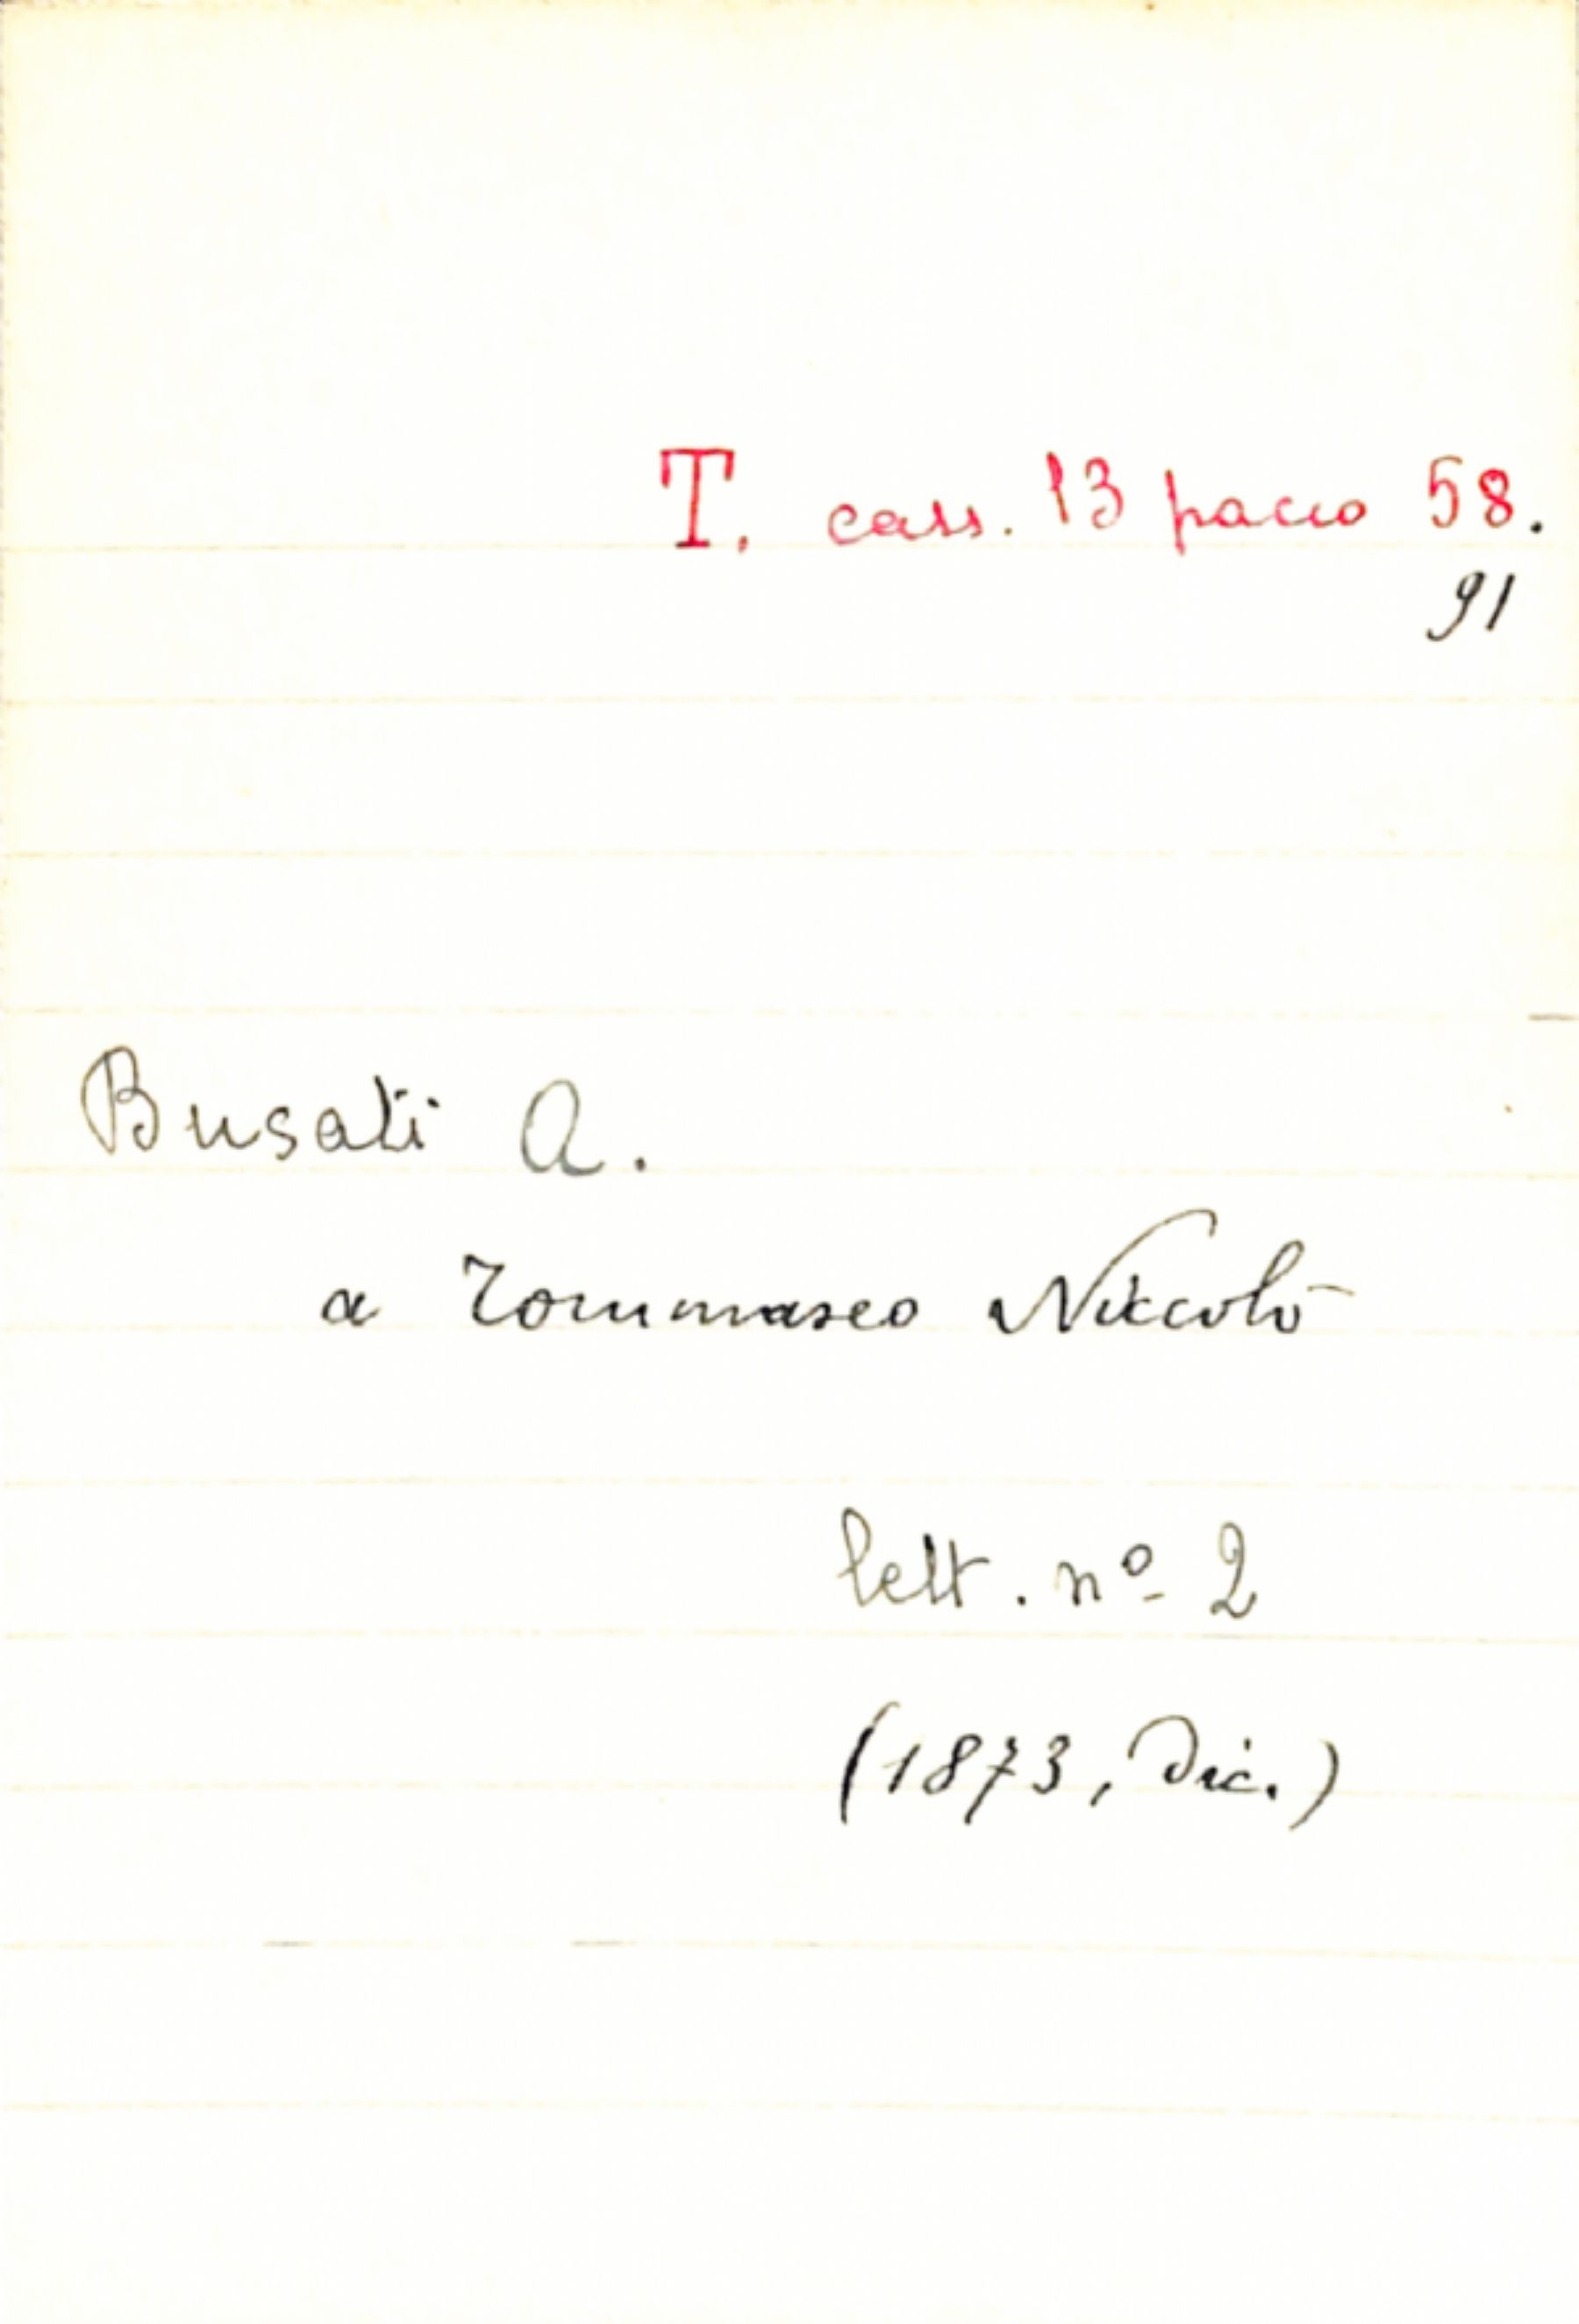 T. cass. 13 pacco 58.
91
Busati A.
a Tommaseo Niccolò
lett. nº 2
(1873, Dic.)